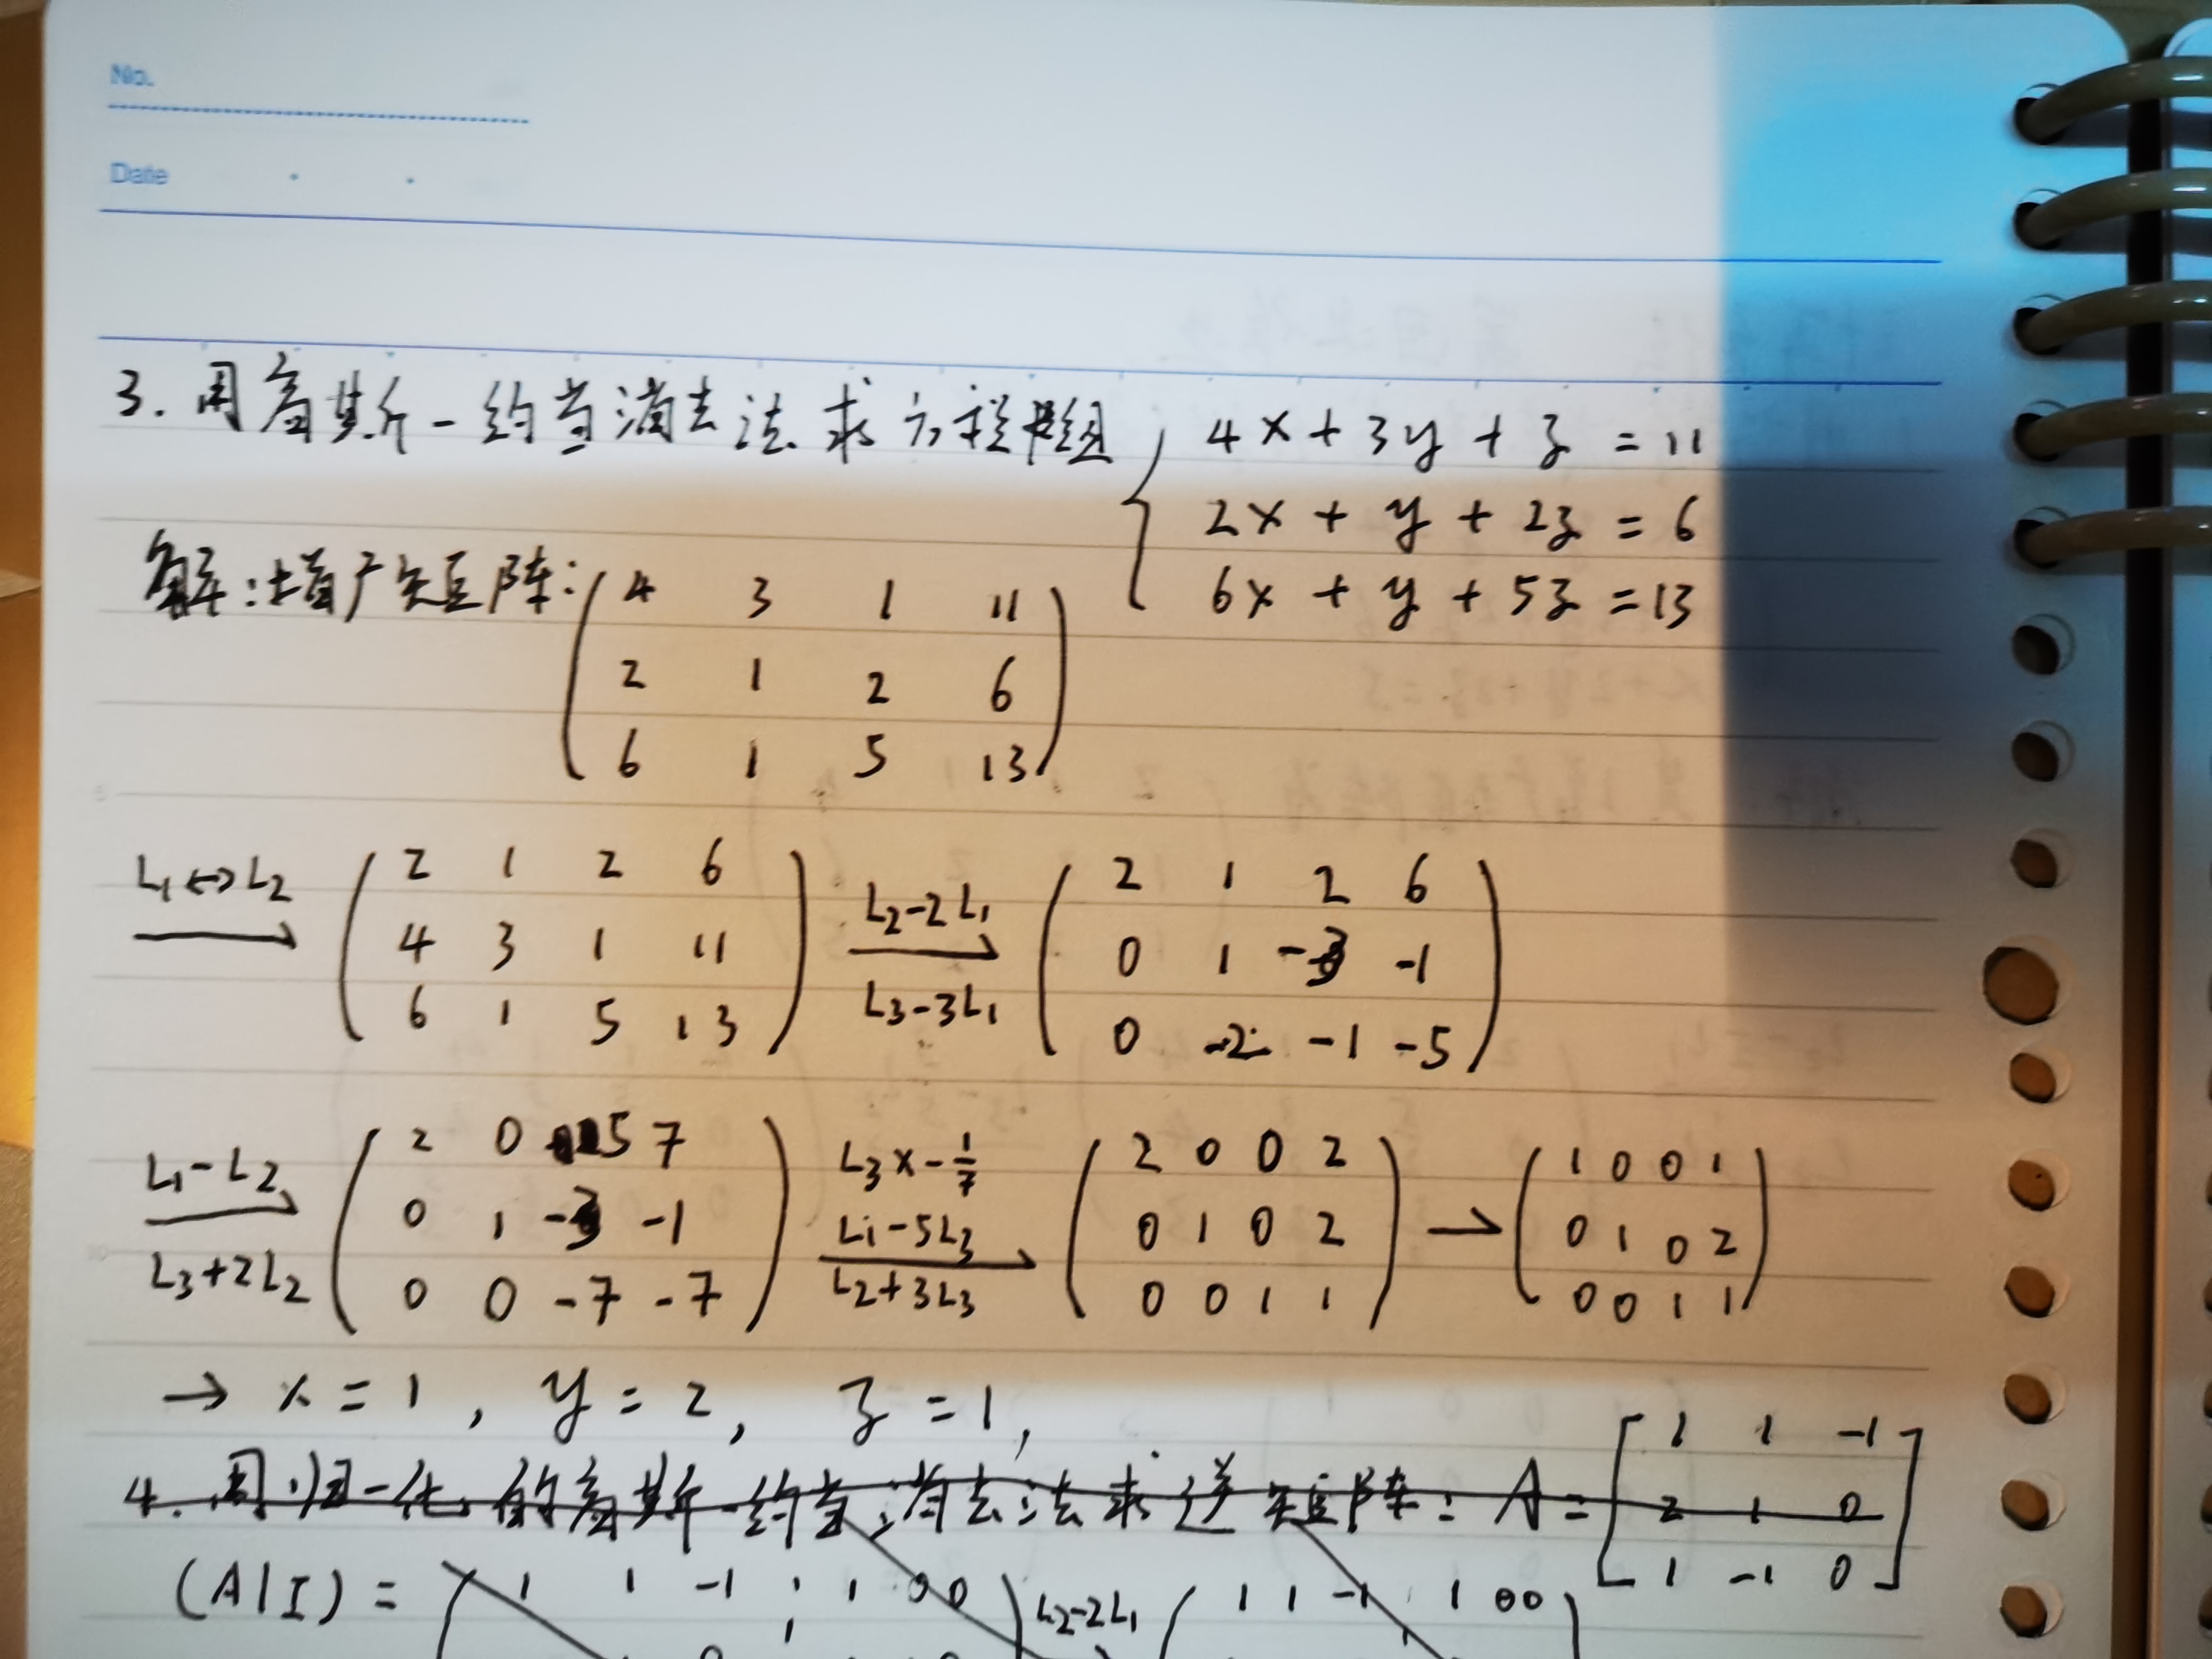 No.
Date
3. 用高斯-约当消去法求方程组 { 4x + 3y + z = 11
2x + y + 2z = 6
6x + y + 5z = 13
解:增广矩阵:
4 3 1 11
2 1 2 6
6 1 5 13
L1↔L2
2 1 2 6
4 3 1 11
6 1 5 13
L2-2L1
L3-3L1
2 1 2 6
0 1 -3 -1
0 -2 -1 -5
L1-L2
L3+2L2
2 0 5 7
0 1 -3 -1
0 0 -7 -7
L3×-1/7
L1-5L3
L2+3L3
2 0 0 2
0 1 0 2
0 0 1 1
→
1 0 0 1
0 1 0 2
0 0 1 1
→ x = 1, y = 2, z = 1,
4. 用归一化的高斯-约当消去法求逆矩阵: A =
1 1 -1
2 1 0
1 -1 0
(A|I) =
1 1 -1 1 0 0
L2-2L1
1 1 -1 1 0 0